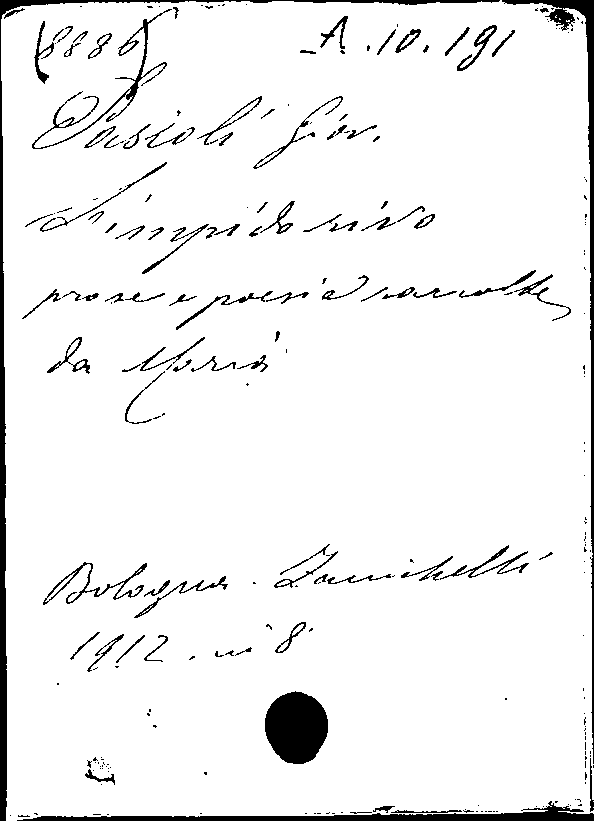 (8886) A.10.191
Pascoli Giov.
Limpido rivo
prose e poesia raccolte
da Maria
Bologna. Zanichelli
1912. in 8.